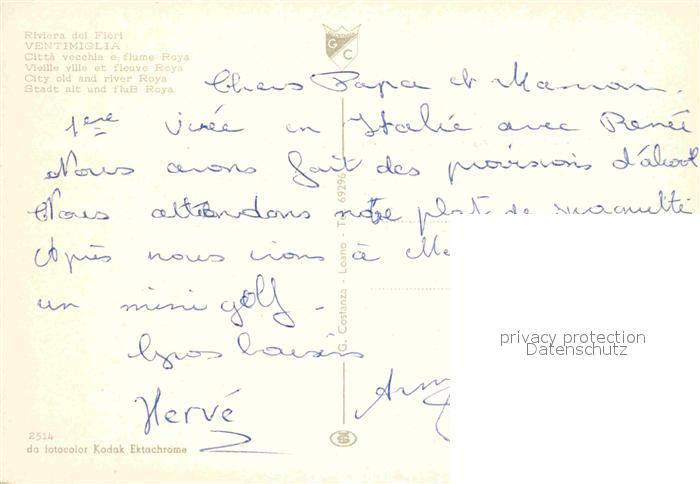 Riviera dei Fiori
VENTIMIGLIA
Città vecchia e fiume Roya
Vieille ville et fleuve Roya
City old and river Roya
Stadt alt und fluß Roya
G C
Chers Papa et Maman.
1ère virée en Italie avec Renée
Nous avons fait des provisions d'alcool
Nous attendons notre plat de
Après nous irons à Me
un mini golf -
Gros baisers
Hervé
G. Costanza - Loano - Tel. 69296
privacy protection
Datenschutz
2514
da fotocolor Kodak Ektachrome